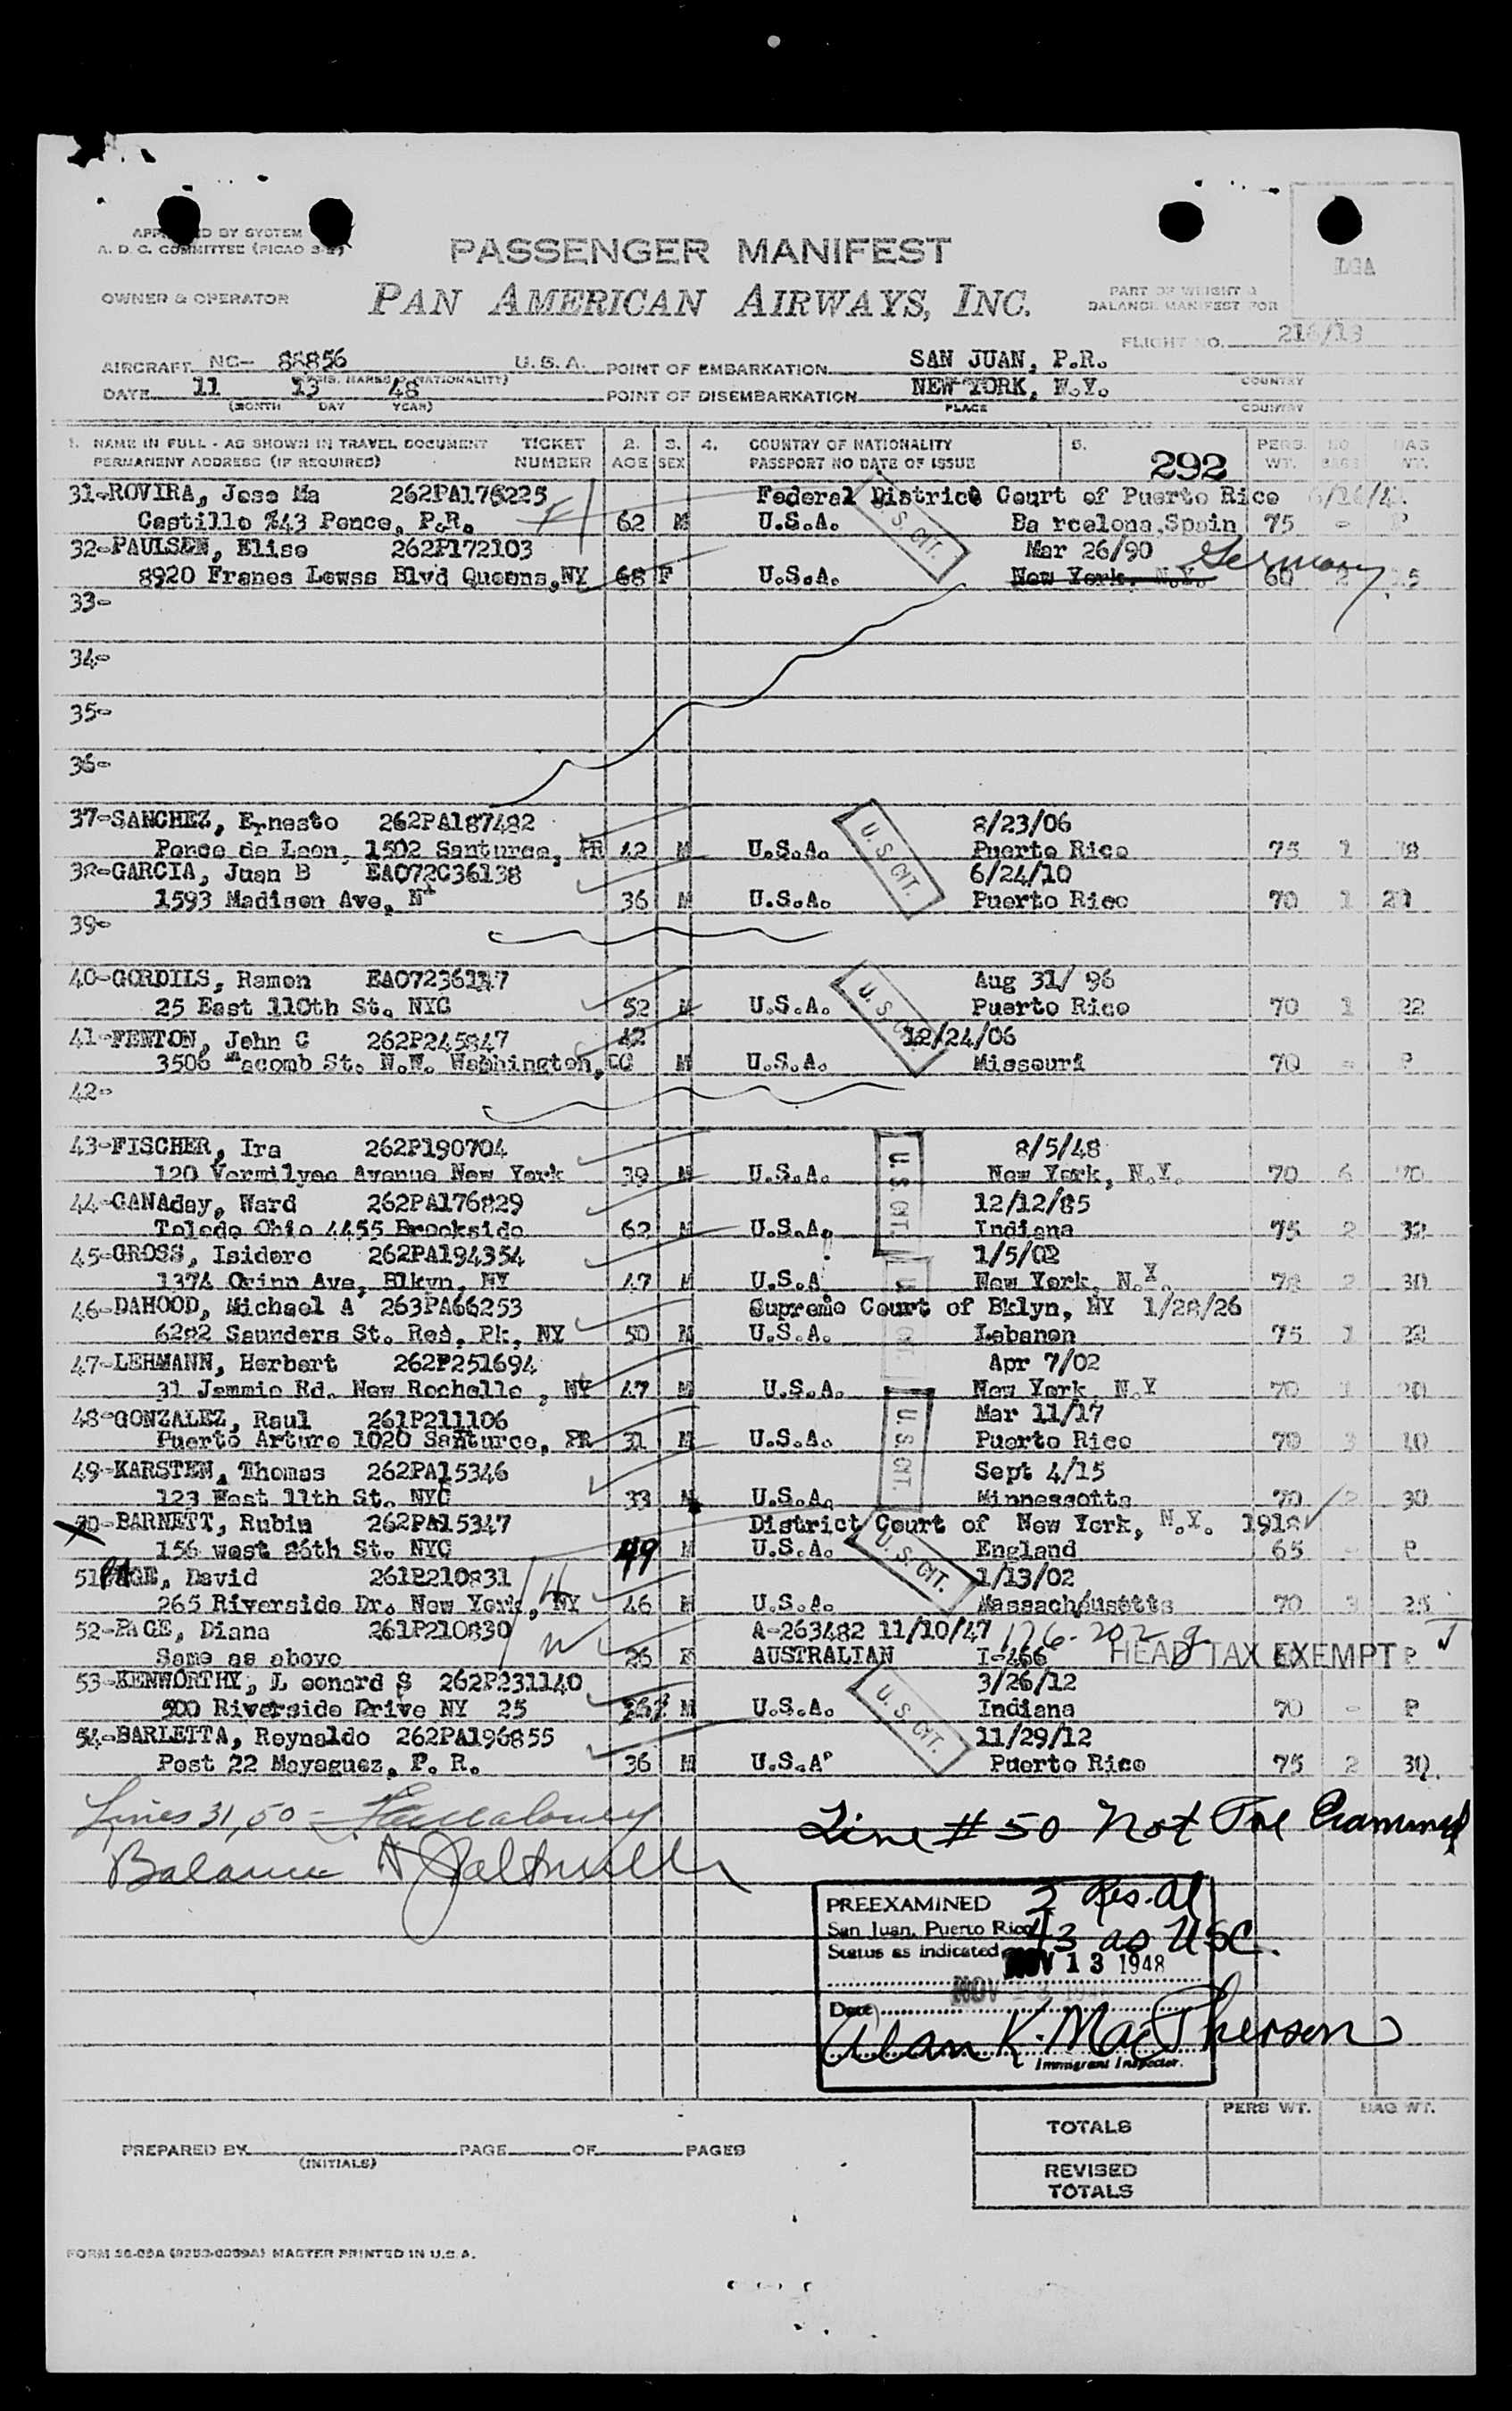 LGA
PASSENGER MANIFEST
OWNER & OPERATOR PAN AMERICAN AIRWAYS, INC.
PART OF WEIGHT &
BALANCE MANIFEST FOR
FLIGHT NO. 216/13
AIRCRAFT NC- 88856 U.S.A. POINT OF EMBARKATION SAN JUAN, P.R. COUNTRY
DATE 11 13 48 POINT OF DISEMBARKATION NEW YORK, N.Y.
(MONTH DAY YEAR) PLACE COUNTRY
1. NAME IN FULL - AS SHOWN IN TRAVEL DOCUMENT TICKET 2. 3. 4. COUNTRY OF NATIONALITY 5. PERS. NO BAG
PERMANENT ADDRESS (IF REQUIRED) NUMBER AGE SEX PASSPORT NO DATE OF ISSUE 292 WT. BAGS WT.
31-ROVIRA, Jose Ma 262PA176225 Federal District Court of Puerto Rico
Castillo #43 Ponce, P.R. 62 M U.S.A. U.S. CIT. Ba rcelona, Spain 75 - P
32-PAULSEN, Elise 262P172103 Mar 26/90 Germany
8920 Franes Lewss Blvd Queens,NY 68 F U.S.A. New York, N.Y. 60
33-
34-
35-
36-
37-SANCHEZ, Ernesto 262PA187482 8/23/06
Ponce de Leon, 1502 Santurce, PR 42 M U.S.A. U.S. CIT. Puerto Rico 75 1
38-GARCIA, Juan B EA072C36138 6/24/10
1593 Madison Ave, N 36 M U.S.A. Puerto Rico 70 1
39-
40-GORDILS, Ramon Aug 31/ 96
25 East 110th St. NYC 52 M U.S.A. U.S. CIT. Puerto Rico 70 1 22
41-FENTON, John C 262P245847 42 12/24/06
3506 Macomb St. N.W. Wabhington, DC M U.S.A. Missouri 70 - P
42-
43-FISCHER, Ira 262P190704 8/5/48
120 Vermilyea Avenue New York 39 M U.S.A. U.S. CIT. New York, N.Y. 70 6 70
44-CANAday, Ward 262PA176829 12/12/85
Toledo Ohio 4455 Brookside 62 M U.S.A. Indiana 75 2 32
45-GROSS, Isidore 262PA194354 1/5/02
1374 Orinn Ave, Blkyn, NY 47 M U.S.A New York, N.Y. 78 2 30
46-DAHOOD, Michael A 263PA66253 Supreme Court of Bklyn, NY 1/28/26
6282 Saunders St. Reã, Pk, NY 50 M U.S.A. Lebanon 75 1
47-LEHMANN, Herbert 262P251694 Apr 7/02
31 Jemmie Rd. New Rochelle , NY 47 M U.S.A. New York, N.Y 70 1 20
48-GONZALEZ, Raul 261P211106 Mar 11/17
Puerto Arturo 1020 Santurce, PR 31 M U.S.A. U.S. CIT. Puerto Rico 70 3 40
49-KARSTEN, Thomas 262PA15346 Sept 4/15
123 West 11th St. NYC 33 M U.S.A. Minnessotta 70 2 30
50-BARNETT, Rubin 262PA15347 District Court of New York, N.Y. 1918
156 west 86th St. NYC 49 M U.S.A. U.S. CIT. England 65 - P
51-PAGE, David 261P210831 1/13/02
265 Riverside Dr. New York, NY 46 M U.S.A. Massachusetts 70 3 25
52-PAGE, Diana 261P210830 A-263482 11/10/47
Same as above 26 F AUSTRALIAN I-466 HEAD TAX EXEMPT P
53-KENWORTHY, L eonard S 262P231140 3/26/12
500 Riverside Drive NY 25 36 M U.S.A. U.S. CIT. Indiana 70 - P
54-BARLETTA, Reynaldo 262PA196855 11/29/12
Post 22 Mayaguez, P. R. 36 M U.S.A. Puerto Rico 75 2 30.
Lines 31, 50 -
Line # 50 Not Pre Examined
Balance
PREEXAMINED 2 Res. al
San Juan, Puerto Rico 43 as USC.
Status as indicated NOV 13 1948
Date
Alan K. MacPherson
Immigrant Inspector.
PERS WT. BAG WT.
TOTALS
PREPARED BY PAGE OF PAGES
(INITIALS)
REVISED
TOTALS
MASTER PRINTED IN U.S.A.